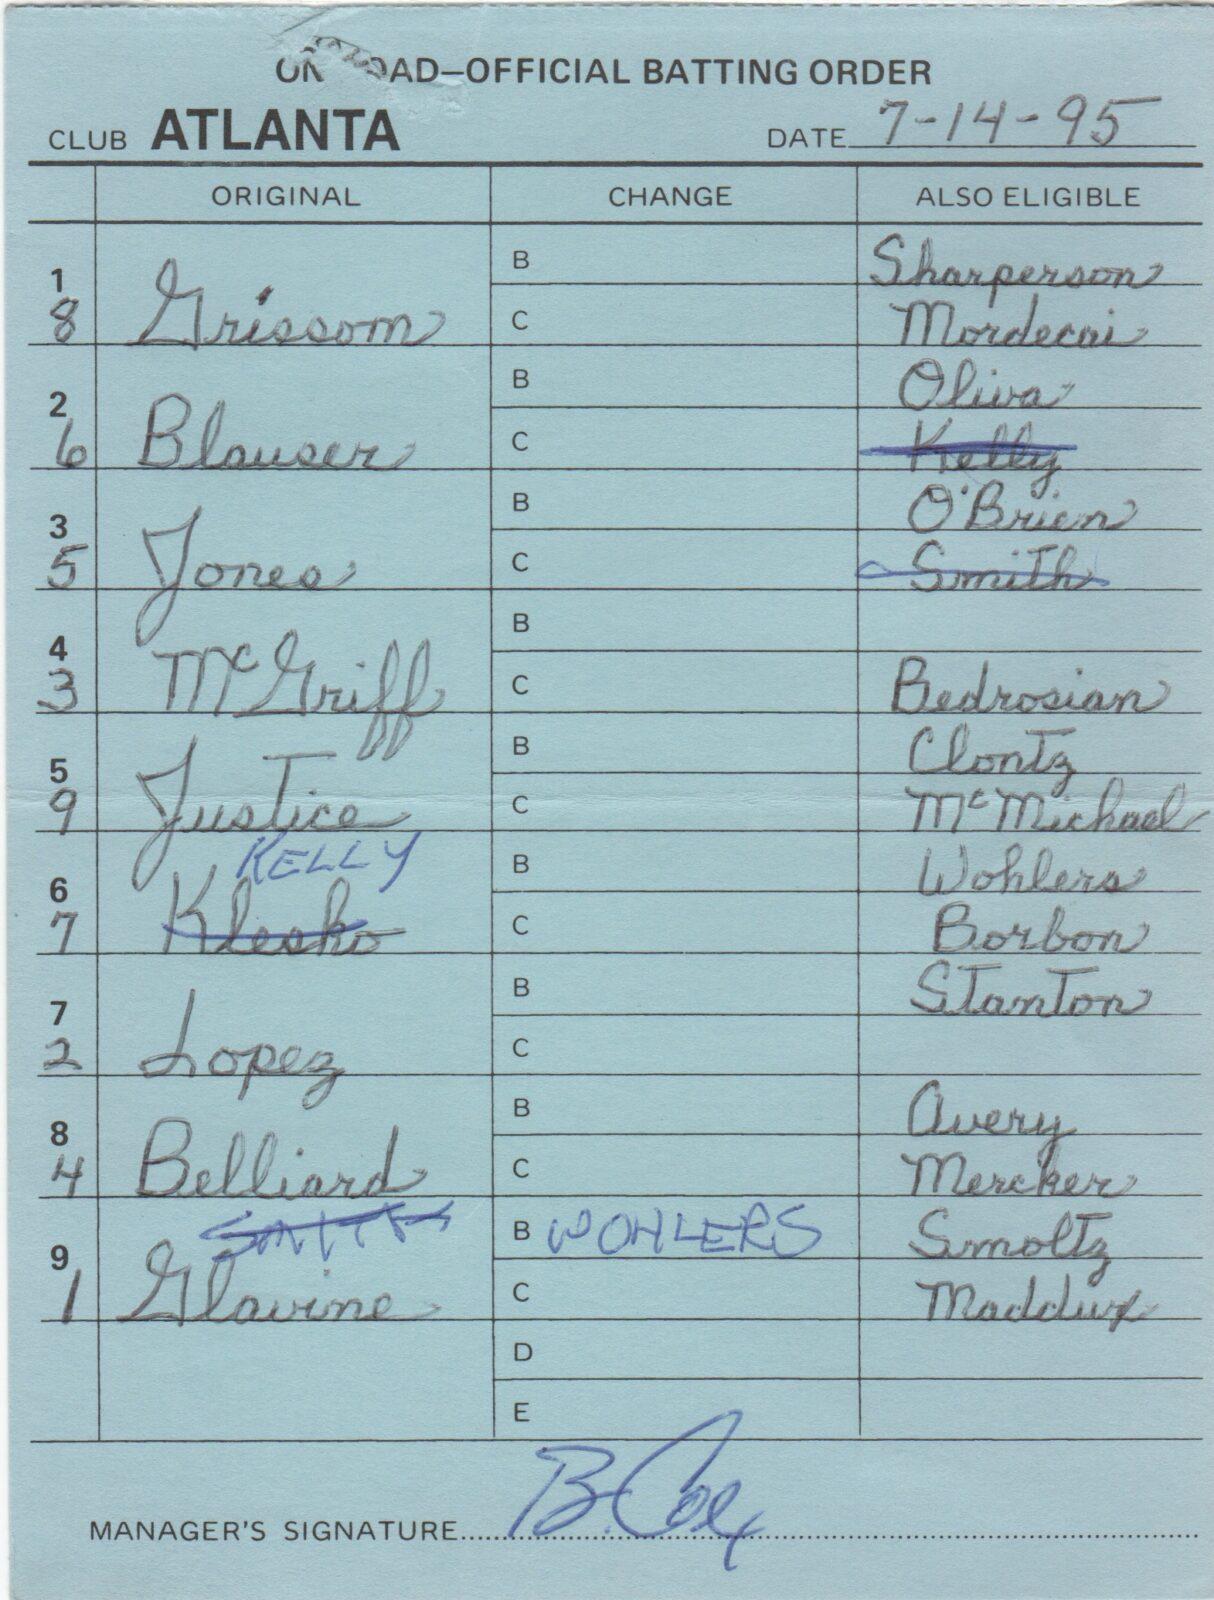 ON ROAD—OFFICIAL BATTING ORDER
CLUB ATLANTA DATE 7-14-95
ORIGINAL CHANGE ALSO ELIGIBLE
B Sharperson
1 8 Grissom C Mordecai
B Oliva
2 6 Blauser C Kelly
B O'Brien
3 5 Jones C Smith
B
4 3 McGriff C Bedrosian
B Clontz
5 9 Justice C McMichael
KELLY B Wohlers
6 7 Klesko C Borbon
B Stanton
7 2 Lopez C
B Avery
8 4 Belliard C Mercker
SMITH B WOHLERS Smoltz
9 1 Glavine C Maddux
D
E
MANAGER'S SIGNATURE B. Cox